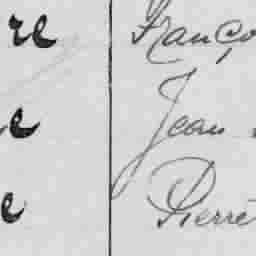 re Franço
e Jean
e Pierre